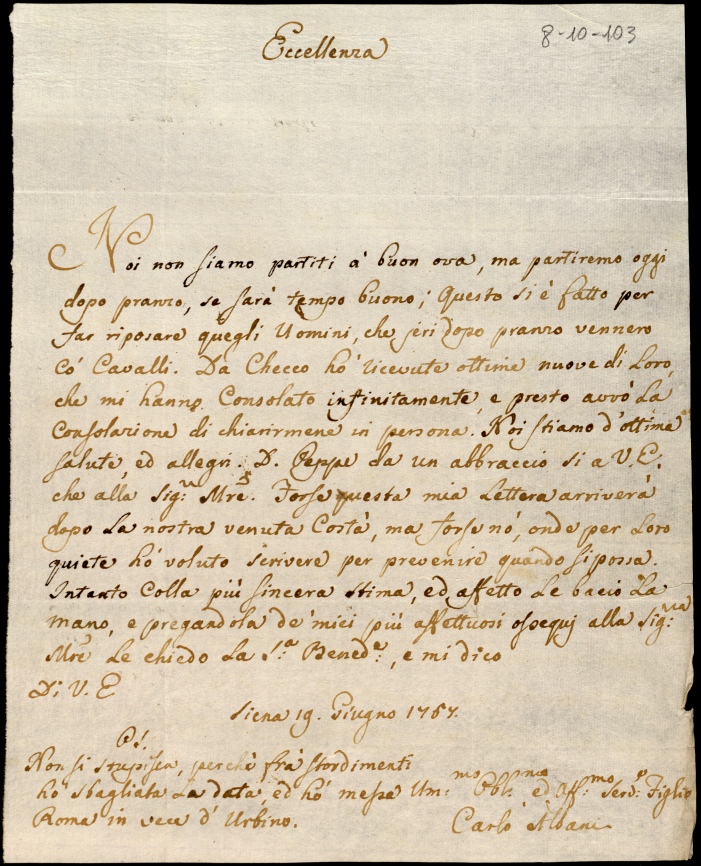 8-10-103
Eccellenza
Noi non siamo partiti à buon ora, ma partiremo oggi
dopo pranzo, se sarà tempo buono; Questo si è fatto per
far riposare quegli Uomini, che jeri dopo pranzo vennero
có Cavalli. Da Checco hó ricevute ottime nuove di Loro,
che mi hanno Consolato infinitamente, e presto avrò La
Consolazione di chiarirmene in persona. Noi stiamo d'ottima
salute, ed allegri. D. Peppe da un abbraccio si a V. E.
che alla Sig:ra Mrẽ. Forse questa mia Lettera arriverà
dopo La nostra venuta Costà, ma forse nò, onde per Loro
quiete hó voluto scrivere per prevenire quando si possa.
Intanto Colla più sincera stima, ed affetto Le bacio La
mano, e pregandola de' miei più affettuosi ossequj alla Sig:ra
Mrẽ Le chiedo La S.a Bened.e, e mi dico
Di V. E
Siena 19. Giugno 1767.
Ps.
Non si stupisca, perchè frà stordimenti
hò sbagliata La data, ed hò messa
Roma in vece d'Urbino.
Um:mo Obb:mo ed Aff:mo Serv:e Figlio
Carlo Albani